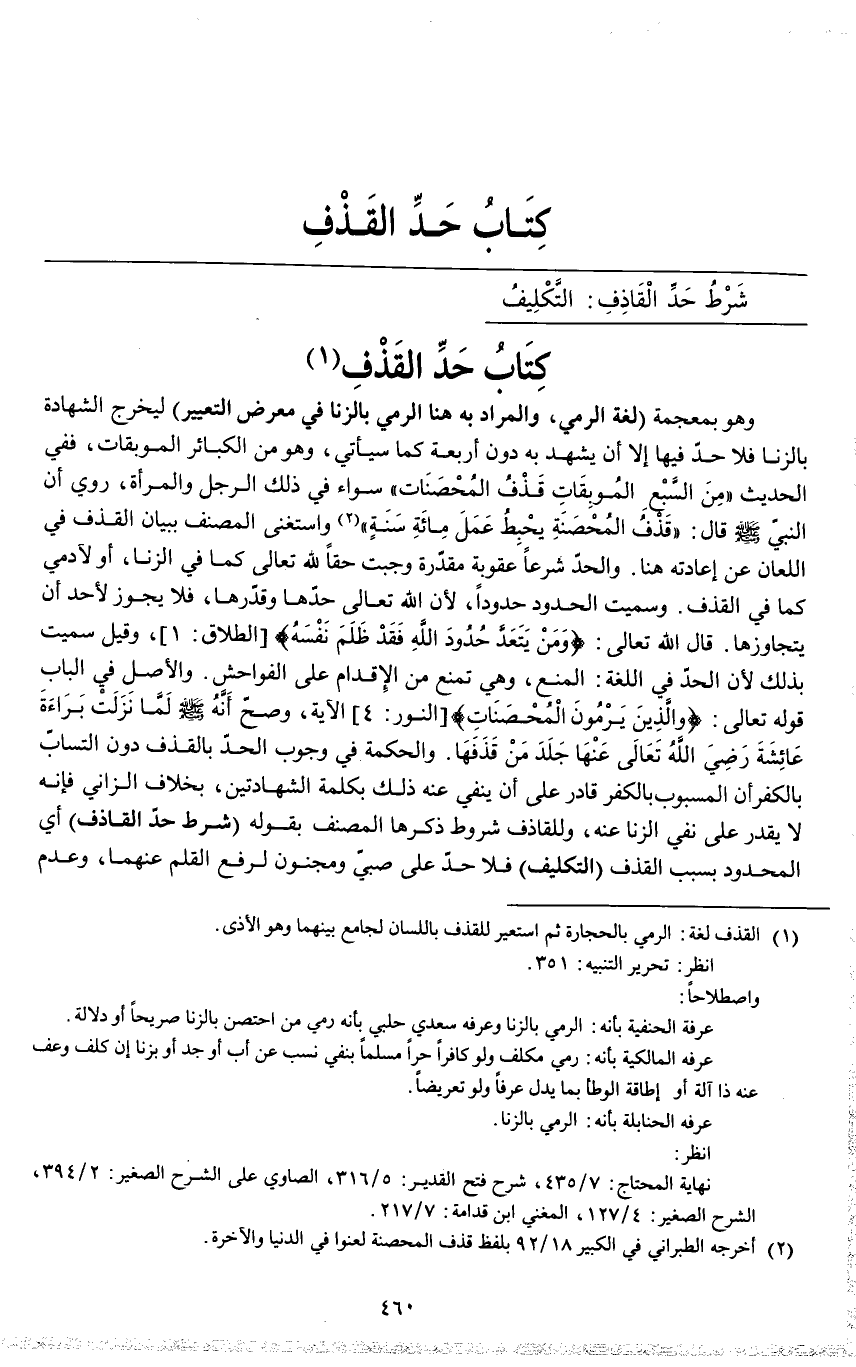 كِتَـابُ حَـدِّ القَـذْفِ
شَرْطُ حَدِّ الْقَاذِفِ: التَّكْلِيفُ
كِتَابُ حَدِّ القَذْفِ(١)
وهو بمعجمة (لغة الرمي، والمراد به هنا الرمي بالزنا في معرض التعيير) ليخرج الشهادة
بالزنـا فلا حـدّ فيها إلا أن يشهـد به دون أربعـة كما سيـأتي، وهو من الكبائر المـوبقات، ففي
الحديث «مِنَ السَّبْعِ المُـوبِقَاتِ قَـذْفُ المُحْصَنَات» سـواء في ذلك الـرجل والمـرأة، روي أن
النبيّ ﷺ قال: «قَذْفُ المُحْصَنَةِ يحْبِطُ عَمَلَ مِـائَةِ سَنَـةٍ»(٢) واستغنى المصنف ببيان القـذف في
اللعان عن إعادته هنا. والحدّ شرعاً عقوبة مقدّرة وجبت حقاً لله تعالى كمـا في الزنـا، أو لآدمي
كما في القذف. وسميت الحدود حدوداً، لأن الله تعـالى حدّهـا وقدّرهـا، فلا يجـوز لأحد أن
يتجاوزها. قال الله تعالى: ﴿وَمَنْ يَتَعَدَّ حُدُودَ اللَّهِ فَقَدْ ظَلَمَ نَفْسَهُ﴾ [الطلاق: ١]، وقيل سميت
بذلك لأن الحدّ في اللغة: المنع، وهي تمنع من الإقـدام على الفواحش. والأصل في الباب
قوله تعالى: ﴿والَّذِينَ يَـرْمُونَ الْمُحْـصَنَاتِ﴾[النور: ٤] الآية، وصـحّ أَنَّهُ ﷺ لَمَّـا نَزَلَتْ بَـرَاءَةَ
عَائِشَةَ رَضِيَ اللَّهُ تَعَالَى عَنْهَا جَلَدَ مَنْ قَذَفَهَا. والحكمة في وجوب الحـدّ بالقـذف دون التسابّ
بالكفرأن المسبوب بالكفر قادر على أن ينفي عنه ذلـك بكلمة الشهـادتين، بخلاف الـزاني فإنـه
لا يقدر على نفي الزنا عنه، وللقاذف شروط ذكـرها المصنف بقـوله (شـرط حدّ القـاذف) أي
المحـدود بسبب القذف (التكليف) فـلا حـدّ على صبيّ ومجنـون لـرفع القلم عنهمـا، وعـدم
(١) القذف لغة: الرمي بالحجارة ثم استعير للقذف باللسان لجامع بينهما وهو الأذى.
انظر: تحرير التنبيه: ٣٥١.
واصطلاحاً:
عرفة الحنفية بأنه: الرمي بالزنا وعرفه سعدي حلبي بأنه رمي من احتصن بالزنا صريحاً أو دلالة.
عرفه المالكية بأنه: رمي مكلف ولو كافراً حراً مسلماً بنفي نسب عن أب أو جد أو بزنا إن كلف وعف
عنه ذا آلة أو إطاقة الوطأ بما يدل عرفاً ولو تعريضاً.
عرفه الحنابلة بأنه: الرمي بالزنا.
انظر:
نهاية المحتاج: ٤٣٥/٧، شرح فتح القديـر: ٣١٦/٥، الصاوي على الشـرح الصغير: ٣٩٤/٢،
الشرح الصغير: ١٢٧/٤، المغني ابن قدامة: ٢١٧/٧.
(٢) أخرجه الطبراني في الكبير ٩٢/١٨ بلفظ قذف المحصنة لعنوا في الدنيا والآخرة.
٤٦٠